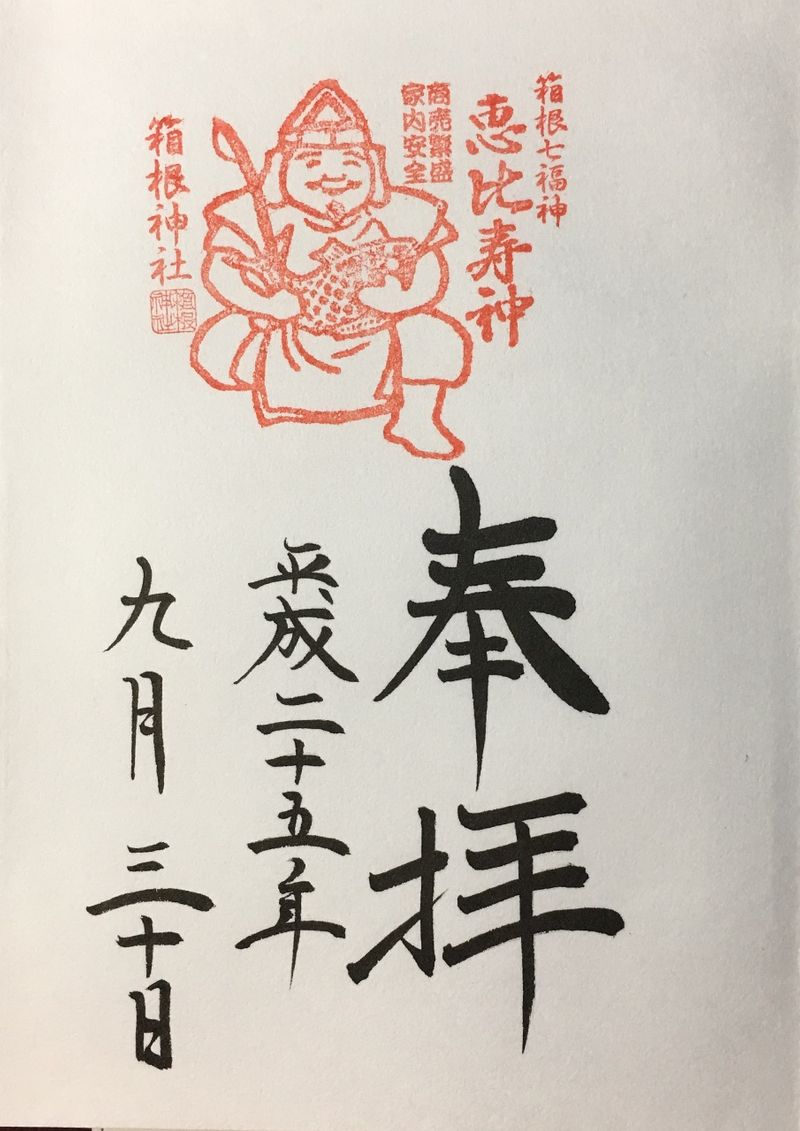 箱根七福神
恵比寿神
商売繁盛
家内安全
箱根神社
箱根
神社
奉拝
平成二十五年
九月三十日